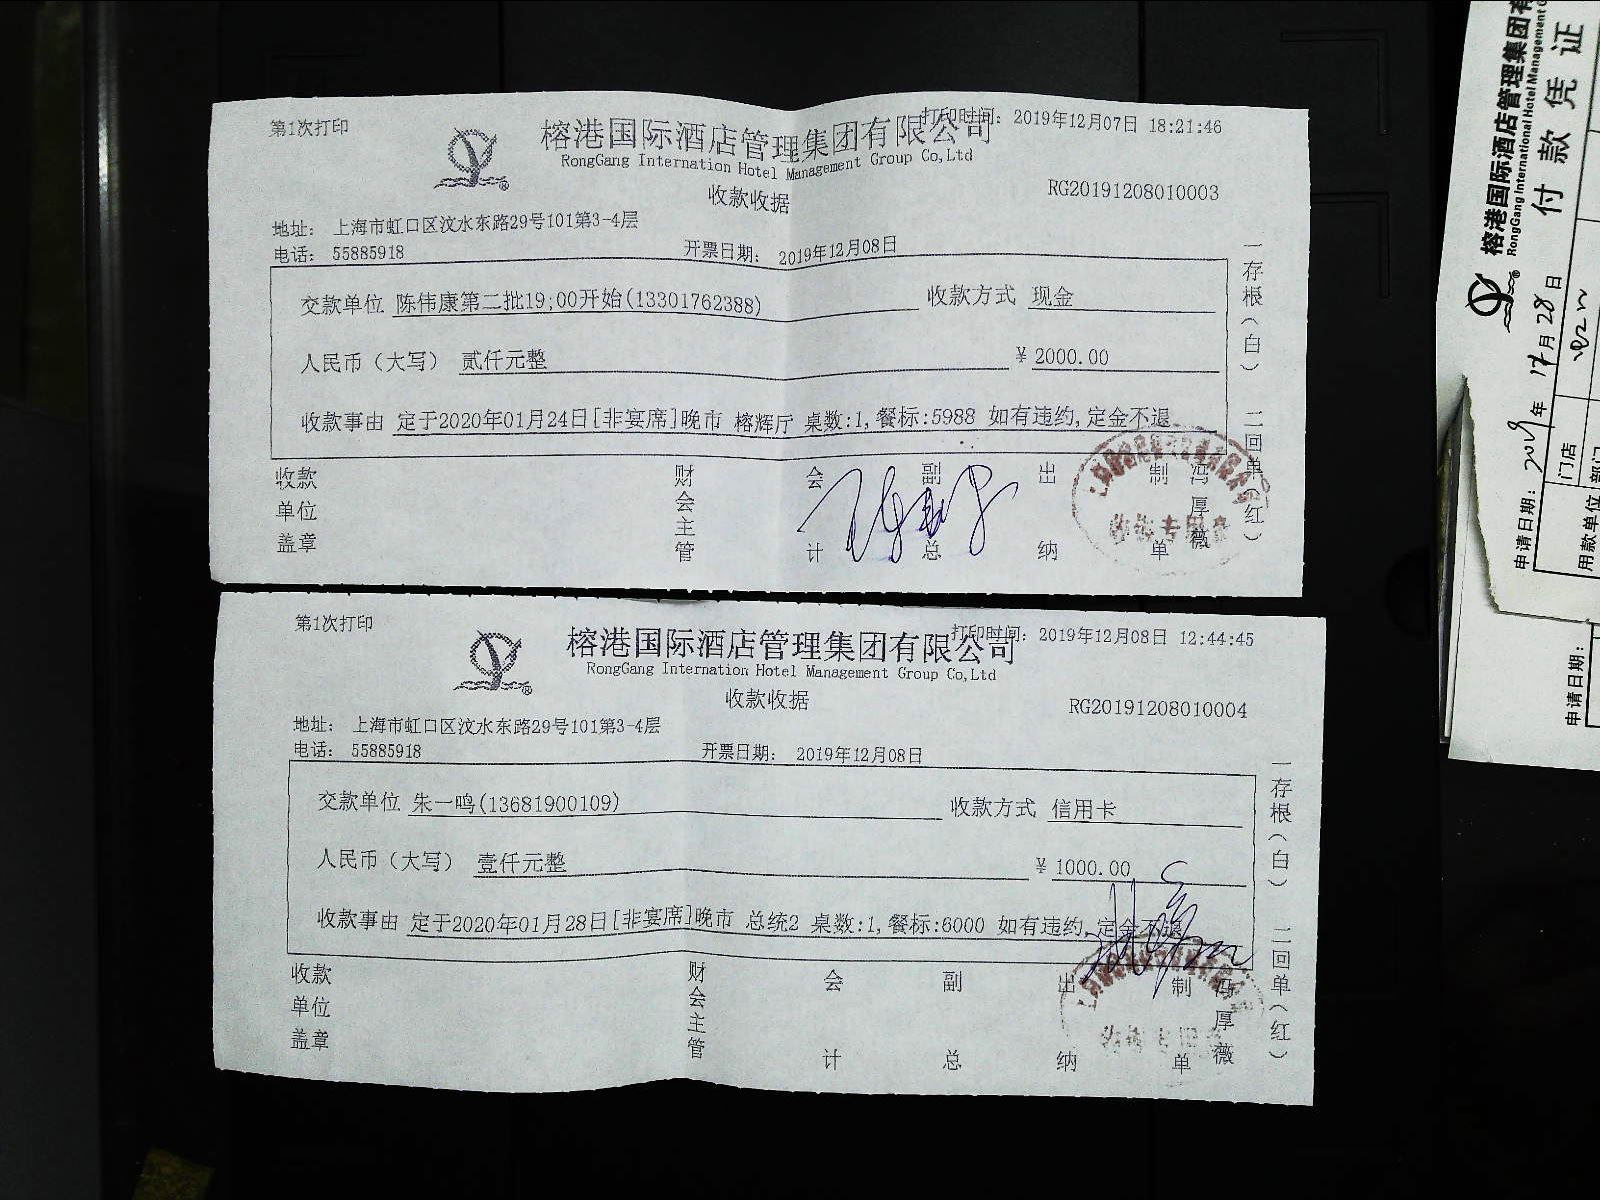 第1次打印
打印时间: 2019年12月07日 18:21:46
榕港国际酒店管理集团有限公司
RongGang Internation Hotel Management Group Co,Ltd
收款收据
RG20191208010003
地址: 上海市虹口区汶水东路29号101第3-4层
电话: 55885918
开票日期: 2019年12月08日
交款单位 陈伟康第二批19;00开始(13301762388) 收款方式 现金
人民币(大写) 贰仟元整 ¥ 2000.00
收款事由 定于2020年01月24日[非宴席]晚市 榕辉厅 桌数:1,餐标:5988 如有违约,定金不退
收款单位盖章 财会主管 会计 副总 出纳 制单 冯厚薇
一存根(白) 二回单(红)
第1次打印
打印时间: 2019年12月08日 12:44:45
榕港国际酒店管理集团有限公司
RongGang Internation Hotel Management Group Co,Ltd
收款收据
RG20191208010004
地址: 上海市虹口区汶水东路29号101第3-4层
电话: 55885918
开票日期: 2019年12月08日
交款单位 朱一鸣(13681900109) 收款方式 信用卡
人民币(大写) 壹仟元整 ¥ 1000.00
收款事由 定于2020年01月28日[非宴席]晚市 总统2 桌数:1,餐标:6000 如有违约,定金不退
收款单位盖章 财会主管 会计 副总 出纳 制单 冯厚薇
一存根(白) 二回单(红)
榕港国际酒店管理集团有
RongGang International Hotel Management
付款凭证
申请日期: 2019年12月28日
门店
用款单位 部门
申请日期: